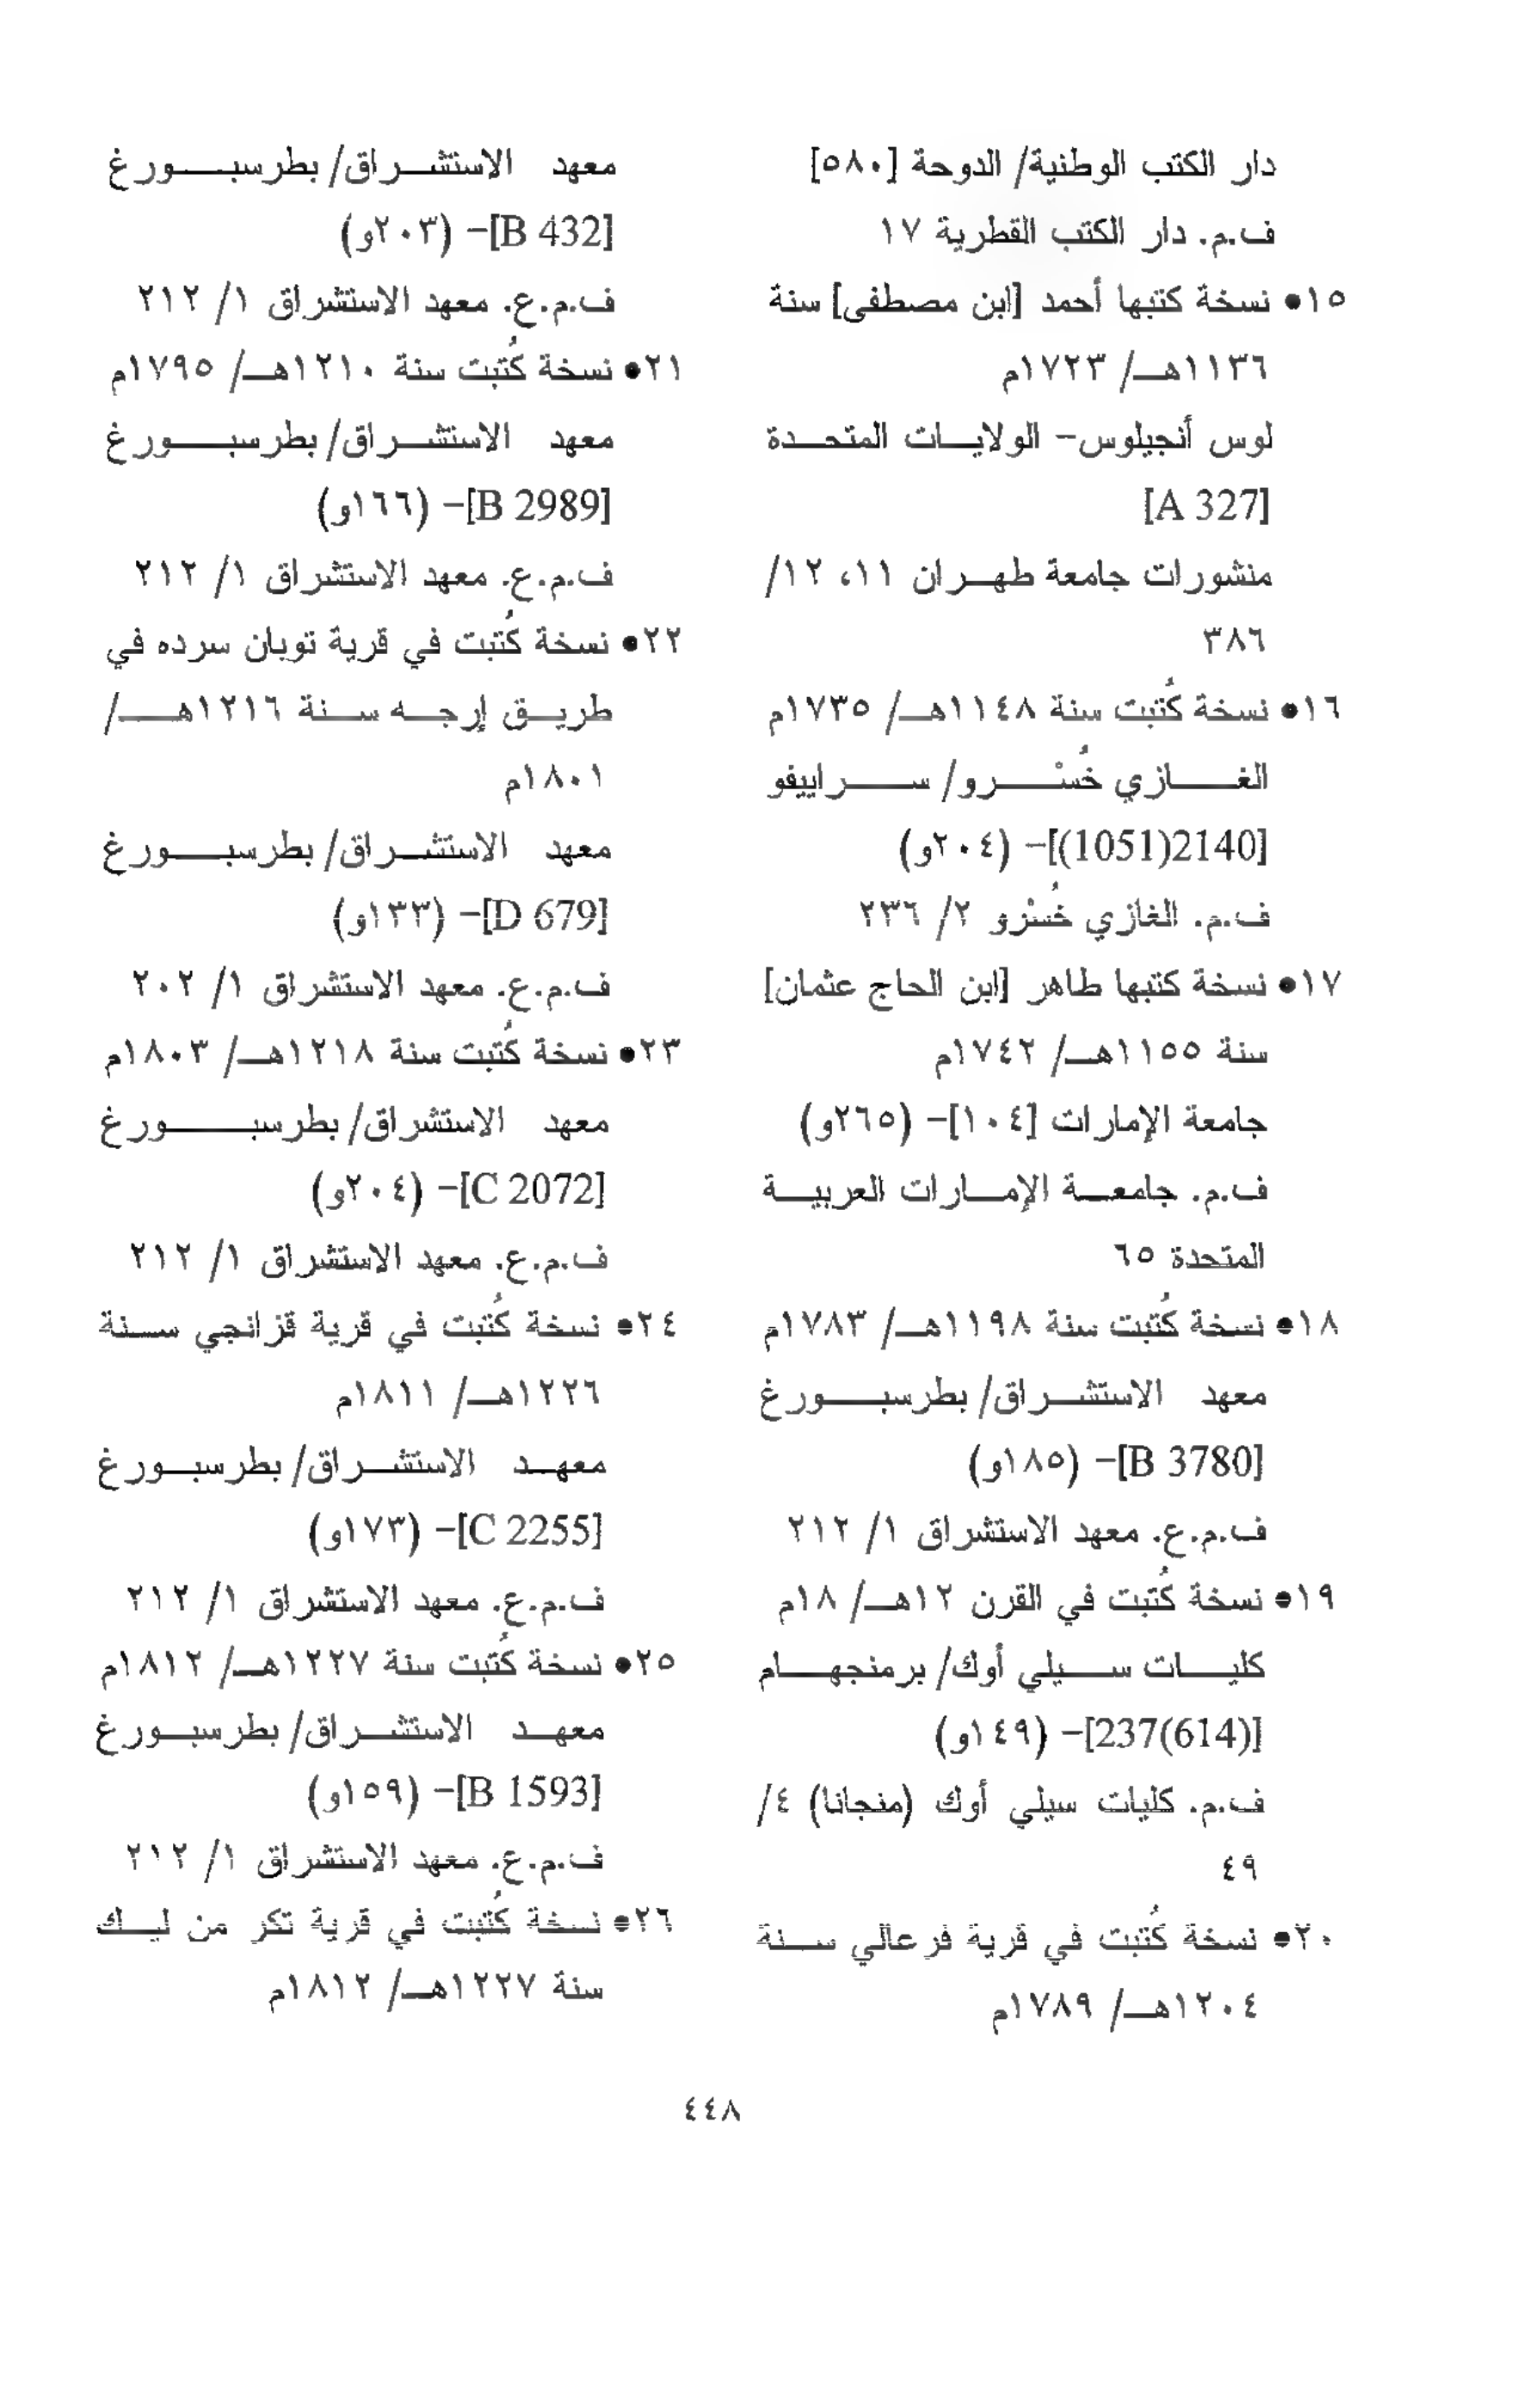 دار الكتب الوطنية/ الدوحة [٥٨٠]
ف.م. دار الكتب القطرية ١٧
١٥● نسخة كتبها أحمد [ابن مصطفى] سنة
١١٣٦هـ/ ١٧٢٣م
لوس أنجيلوس- الولايات المتحدة
[A 327]
منشورات جامعة طهران ١١، ١٢/
٣٨٦
١٦● نسخة كُتبت سنة ١١٤٨هـ/ ١٧٣٥م
الغازي خُسْرو/ سراييفو
[2140(1051)]- (٢٠٤و)
ف.م. الغازي خُسْرو ٢/ ٢٣٦
١٧● نسخة كتبها طاهر [ابن الحاج عثمان]
سنة ١١٥٥هـ/ ١٧٤٢م
جامعة الإمارات [١٠٤]- (٢٦٥و)
ف.م. جامعة الإمارات العربية
المتحدة ٦٥
١٨● نسخة كُتبت سنة ١١٩٨هـ/ ١٧٨٣م
معهد الاستشراق/ بطرسبورغ
[B 3780]- (١٨٥و)
ف.م.ع. معهد الاستشراق ١/ ٢١٢
١٩● نسخة كُتبت في القرن ١٢هـ/ ١٨م
كليات سيلي أوك/ برمنجهام
[237(614)]- (١٤٩و)
ف.م. كليات سيلي أوك (منجانا) ٤/
٤٩
٢٠● نسخة كُتبت في قرية فرعالي سنة
١٢٠٤هـ/ ١٧٨٩م
معهد الاستشراق/ بطرسبورغ
[B 432]- (٢٠٣و)
ف.م.ع. معهد الاستشراق ١/ ٢١٢
٢١● نسخة كُتبت سنة ١٢١٠هـ/ ١٧٩٥م
معهد الاستشراق/ بطرسبورغ
[B 2989]- (١٦٦و)
ف.م.ع. معهد الاستشراق ١/ ٢١٢
٢٢● نسخة كُتبت في قرية توبان سرده في
طريق إرجه سنة ١٢١٦هـ/
١٨٠١م
معهد الاستشراق/ بطرسبورغ
[D 679]- (١٣٣و)
ف.م.ع. معهد الاستشراق ١/ ٢٠٢
٢٣● نسخة كُتبت سنة ١٢١٨هـ/ ١٨٠٣م
معهد الاستشراق/ بطرسبورغ
[C 2072]- (٢٠٤و)
ف.م.ع. معهد الاستشراق ١/ ٢١٢
٢٤● نسخة كُتبت في قرية قزانجي سنة
١٢٢٦هـ/ ١٨١١م
معهد الاستشراق/ بطرسبورغ
[C 2255]- (١٧٣و)
ف.م.ع. معهد الاستشراق ١/ ٢١٢
٢٥● نسخة كُتبت سنة ١٢٢٧هـ/ ١٨١٢م
معهد الاستشراق/ بطرسبورغ
[B 1593]- (١٥٩و)
ف.م.ع. معهد الاستشراق ١/ ٢١٢
٢٦● نسخة كُتبت في قرية تكر من ليك
سنة ١٢٢٧هـ/ ١٨١٢م
٤٤٨